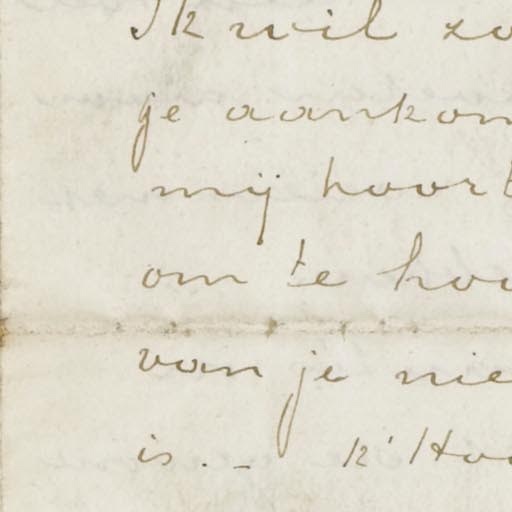 Ik wil zo
je aankom
mij hoort
om te hoo
van je nie
is. - k' Hoo